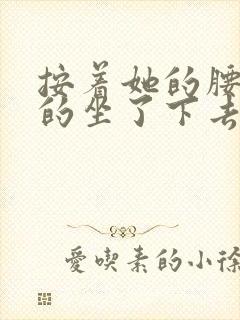 按着她的腰
的坐了下去
愛喫素的小徐